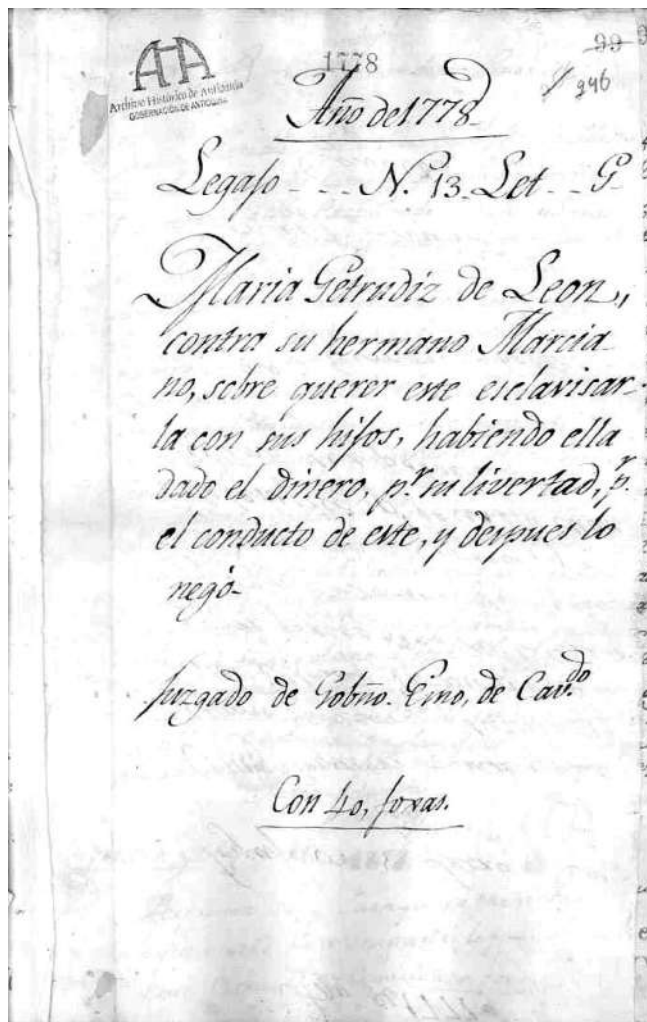 1778
99
946
AHA
Archivo Histórico de Antioquia
GOBERNACIÓN DE ANTIOQUIA
Año de 1778
Legajo - - - N.º 13. Let - - G
Maria Getrudiz de Leon,,
contra su hermano Marcia-
no, sobre querer este esclavisar-
la con sus hijos, habiendo ella
dado el dinero, p.r su livertad, p.r
el conducto de este, y despues lo
negó-
Juzgado de Gobno. Emo, de Cav.do
Con 40, foxas.